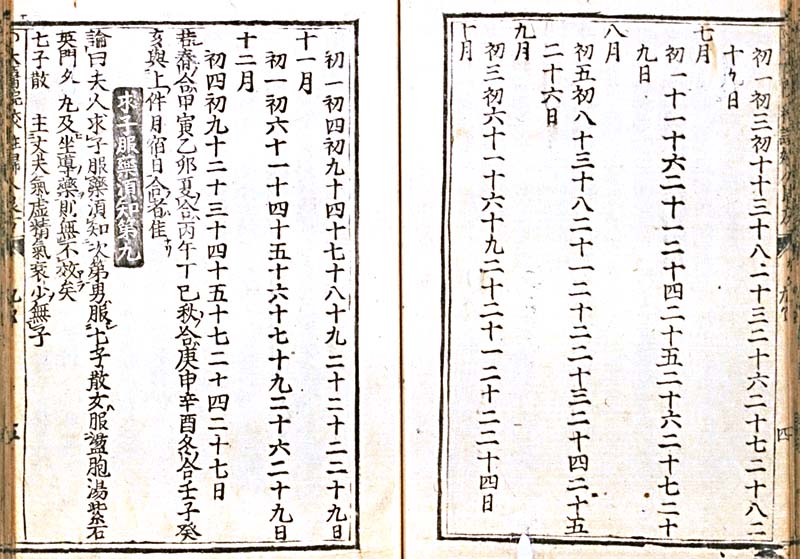 初一初三初十十三十八二十三二十六二十七二十八二
十九日
七月
初一十一十六二十一二十四二十五二十六二十七二十
九日
八月
初五初八十三十八二十一二十二二十三二十四二十五
二十六日
九月
初三初六十一十六十九二十二十一二十二二十四日
十月
初一初四初九十四十七十八十九二十二十二二十九日
十一月
初一初六十一十四十五十六十七十九二十六二十九日
十二月
初四初九十二十三十四十五十七二十四二十七日
若春合甲寅乙卯夏合丙午丁巳秋合庚申辛酉冬合壬子癸
亥與上件月宿日合者佳
求子服藥須知第九
論曰夫人求子服藥須知次第男服七子散女服盪胞湯紫石
英門冬丸及坐導藥則無不效矣
七子散 主丈夫氣虛精氣衰少無子